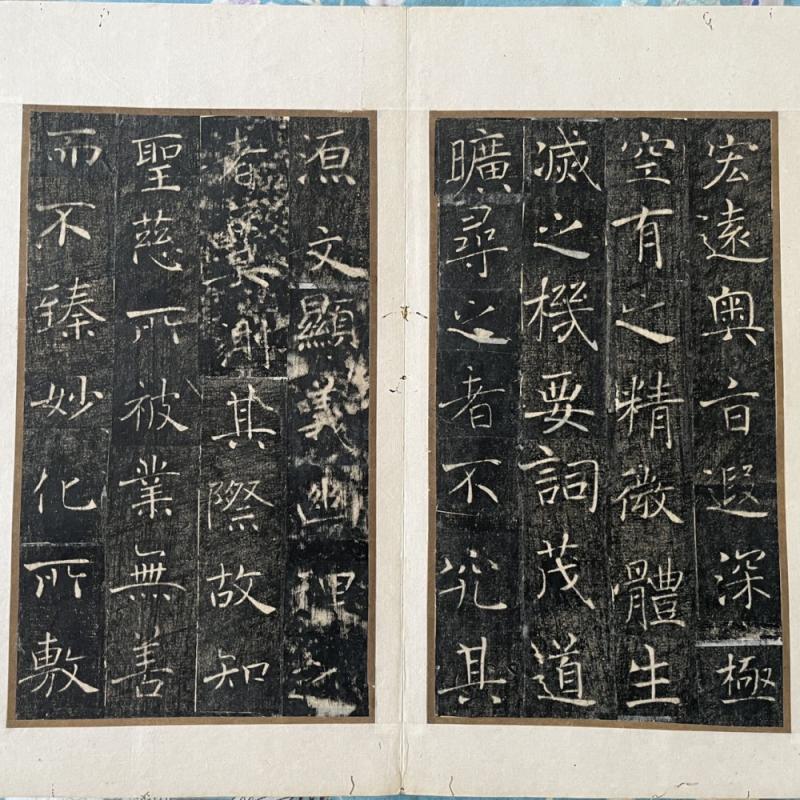 宏遠奥旨遐深極
空有之精微體生
滅之機要詞茂道
曠尋之者不究其
源文顯義幽理之
者莫測其際故知
聖慈所被業無善
而不臻妙化所敷